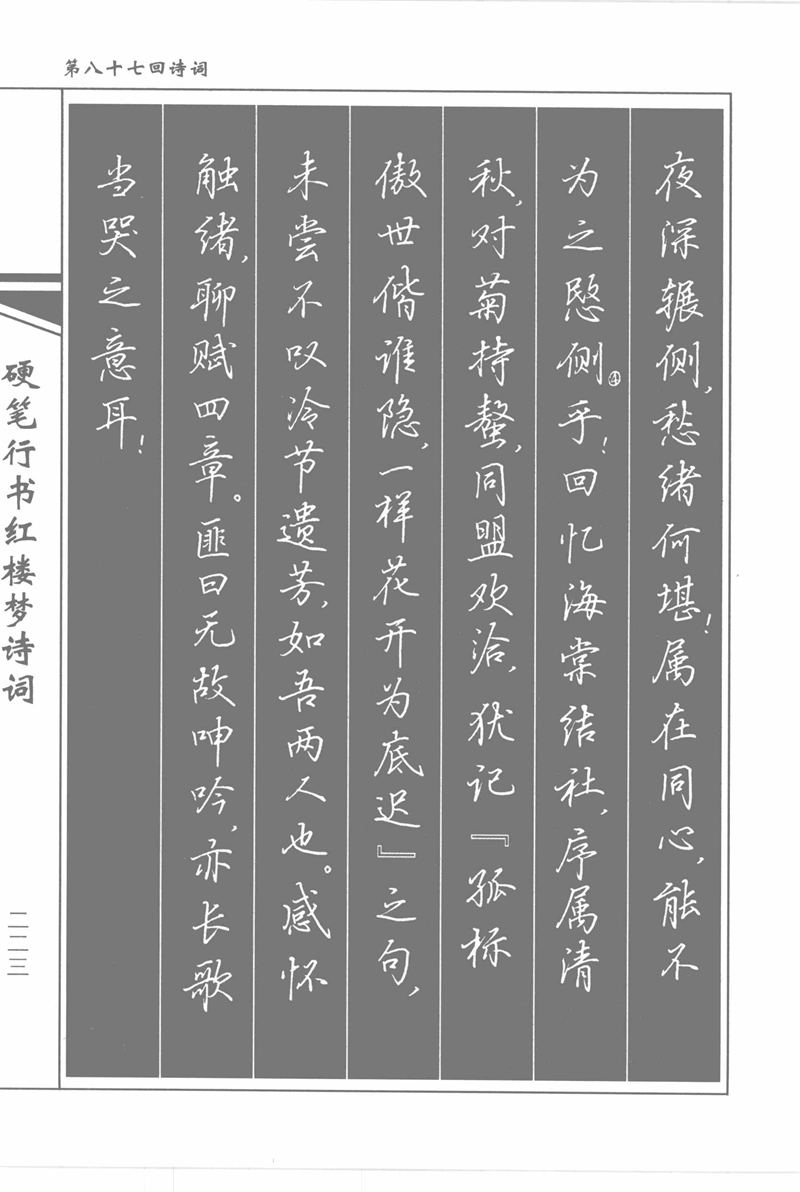 第八十七回诗词
夜深辗侧，愁绪何堪！属在同心，能不
为之愍侧④乎！回忆海棠结社，序属清
秋，对菊持螯，同盟欢洽，犹记『孤标
傲世偕谁隐，一样花开为底迟』之句，
未尝不叹冷节遗芳，如吾两人也。感怀
触绪，聊赋四章。匪曰无故呻吟，亦长歌
当哭之意耳！
硬笔行书红楼梦诗词
二二三